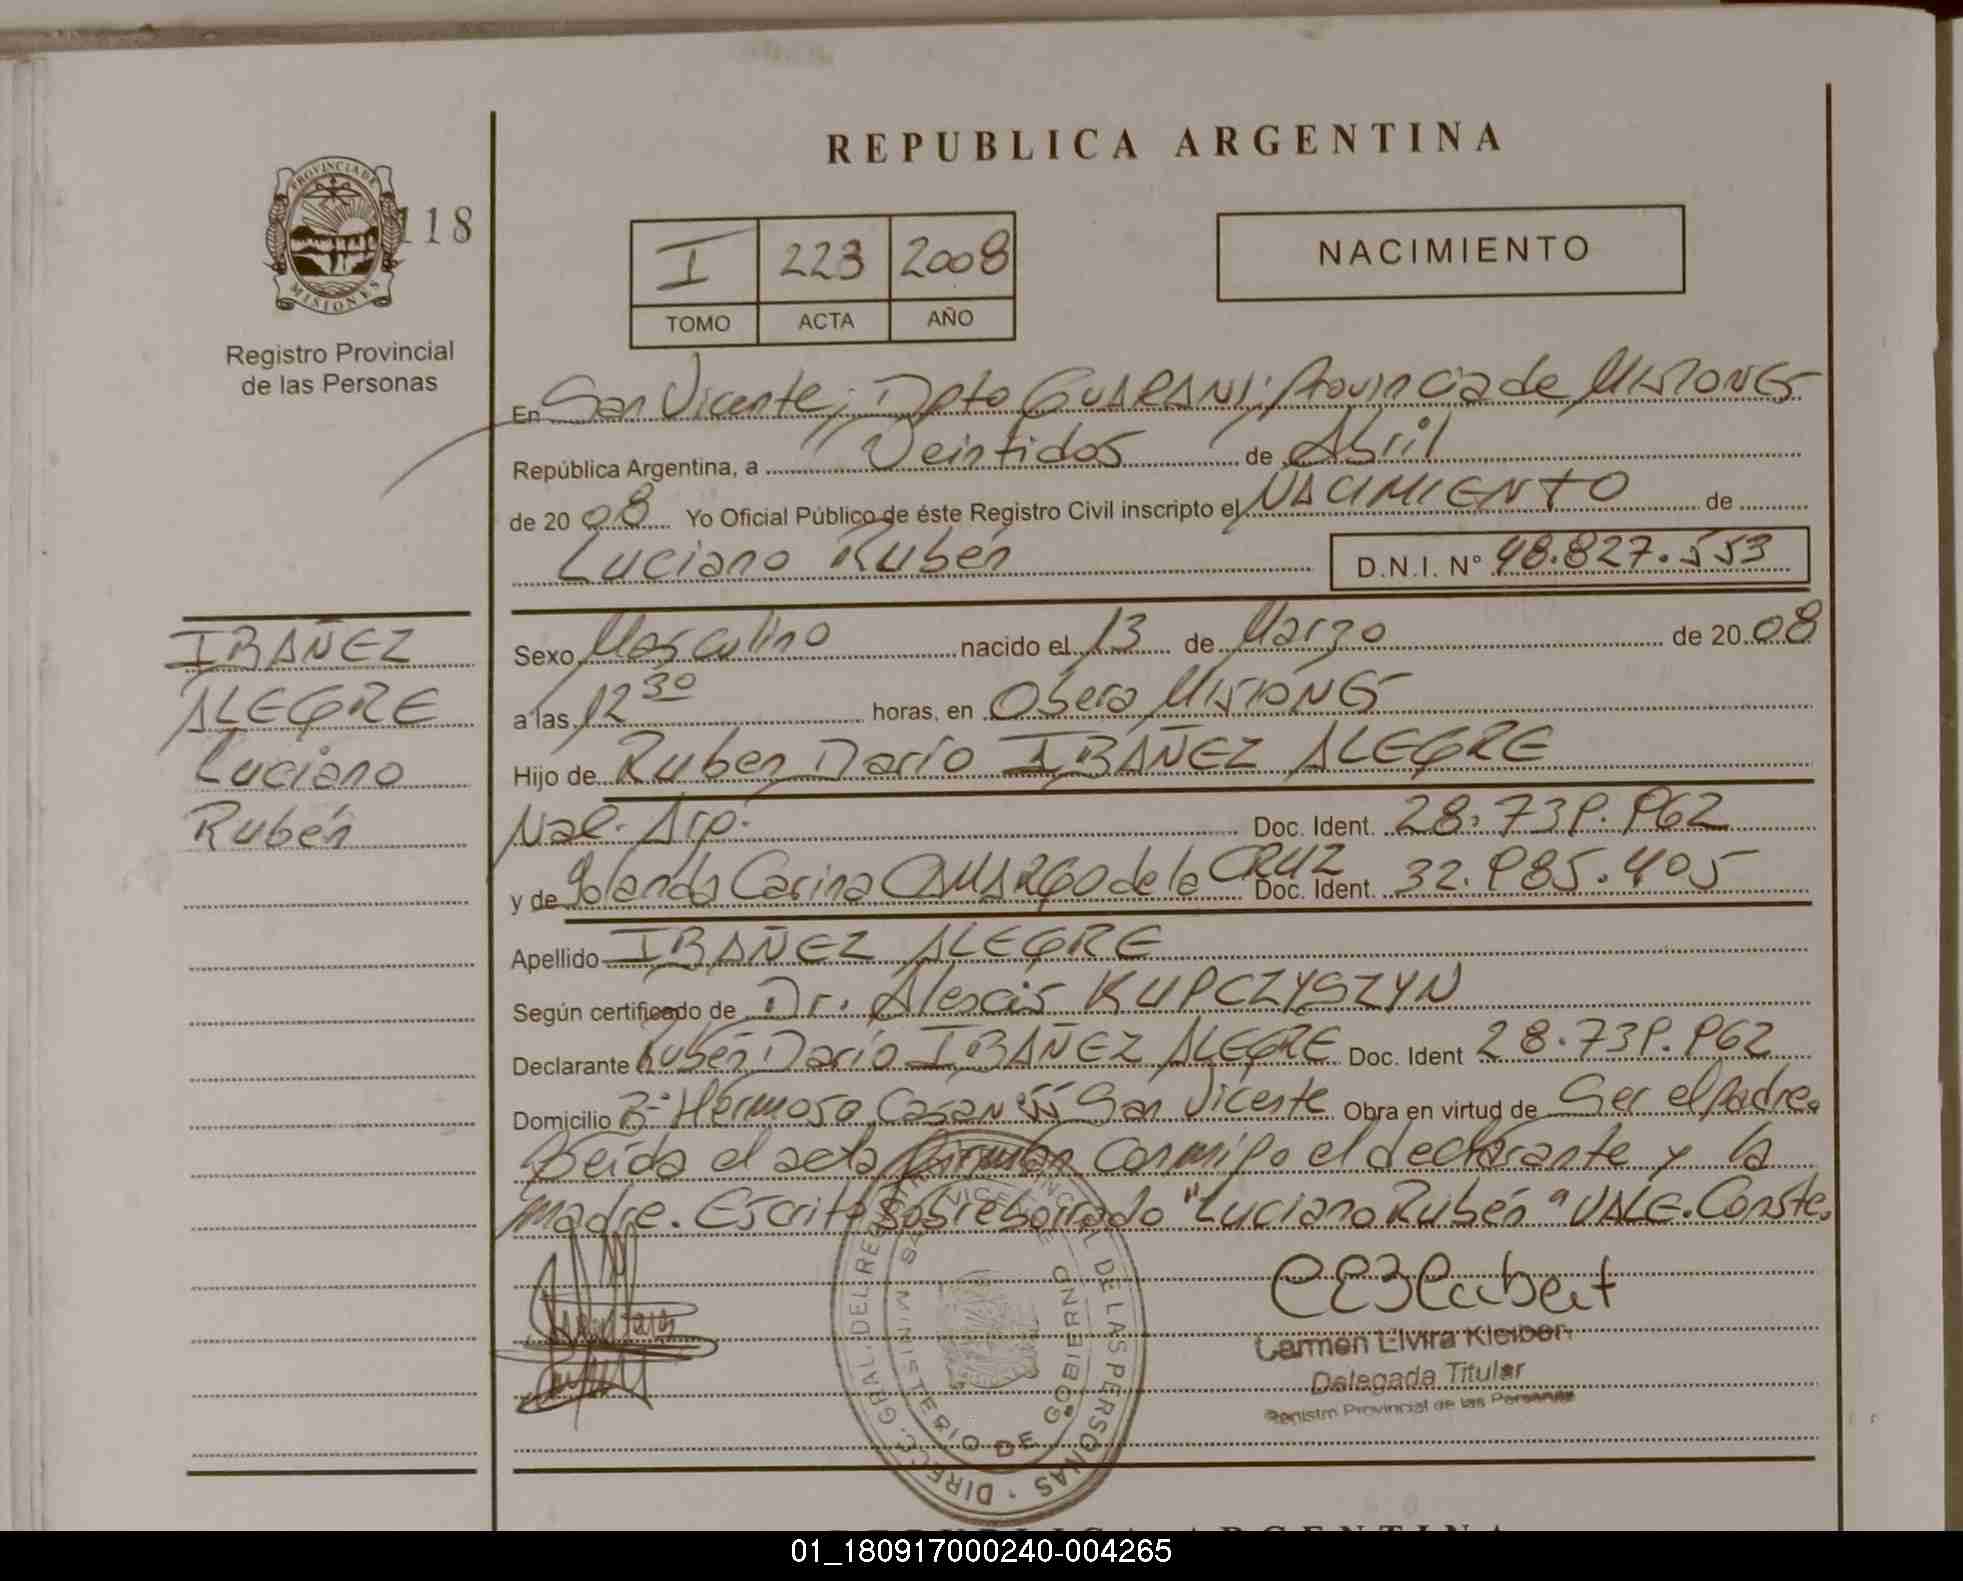 REPUBLICA ARGENTINA
PROVINCIA DE
MISIONES
118
Registro Provincial
de las Personas
I 223 2008
TOMO ACTA AÑO
NACIMIENTO
En San Vicente; Dpto GUARANI; Provincia de MISIONES
República Argentina, a Veintidos de Abril
de 2008 Yo Oficial Público de éste Registro Civil inscripto el NACIMIENTO de
Luciano Rubén D.N.I. Nº 48.827.553
IBAÑEZ
ALEGRE
Luciano
Rubén
Sexo Masculino nacido el 13 de Marzo de 2008
a las 12 30 horas, en Oberá MISIONES
Hijo de Ruben Darío IBAÑEZ ALEGRE
Nac. Arg. Doc. Ident. 28.739.962
y de Yolanda Carina CAMARGO de la CRUZ Doc. Ident. 32.985.405
Apellido IBAÑEZ ALEGRE
Según certificado de Dr. Alexis KUPCZYSZYN
Declarante Rubén Darío IBAÑEZ ALEGRE Doc. Ident 28.739.962
Domicilio Bº Hermoso Casa Nº 55 San Vicente Obra en virtud de Ser el padre.
Leída el acta firman conmigo el declarante y la
madre. Escrito sobreborrado "Luciano Rubén" VALE. Conste.
DIRECC. GRAL. DEL REGISTRO PROVINCIAL DE LAS PERSONAS
MINISTERIO DE GOBIERNO
SAN VICENTE
Carmen Elvira Kleibert
Delegada Titular
Registro Provincial de las Personas
REPUBLICA ARGENTINA
01_180917000240-004265